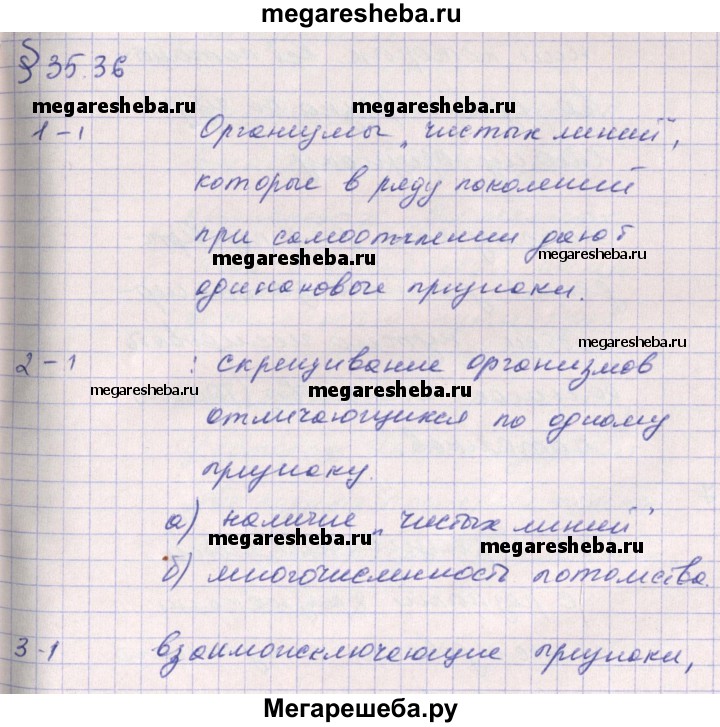 megaresheba.ru
§ 35.36
megaresheba.ru megaresheba.ru
1-1 Организмы „чистых линий",
которые в ряду поколений
при самоопылении дают
megaresheba.ru megaresheba.ru
одинаковые признаки.
2-1 : скрещивание организмов
megaresheba.ru megaresheba.ru
отличающихся по одному
признаку.
а) наличие „чистых линий"
megaresheba.ru megaresheba.ru
б) многочисленность потомства.
3-1 взаимоисключающие признаки,
Мегарешеба.ру